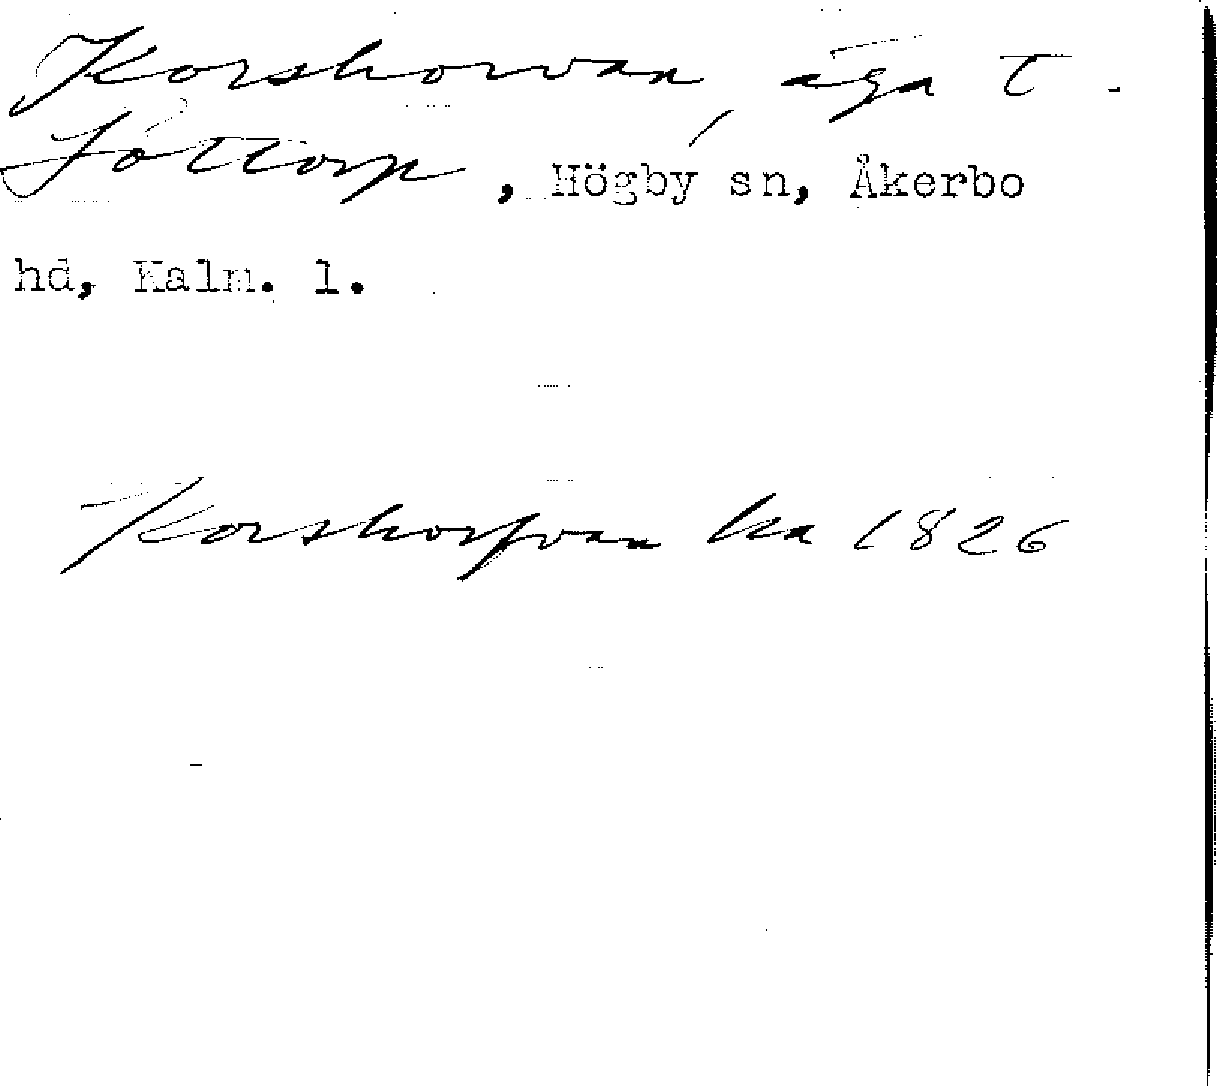 Korshorvan, äga t.
Löttorp, Högby sn, Åkerbo
hd, Kalm. l.
Korshorfvan ka 1826